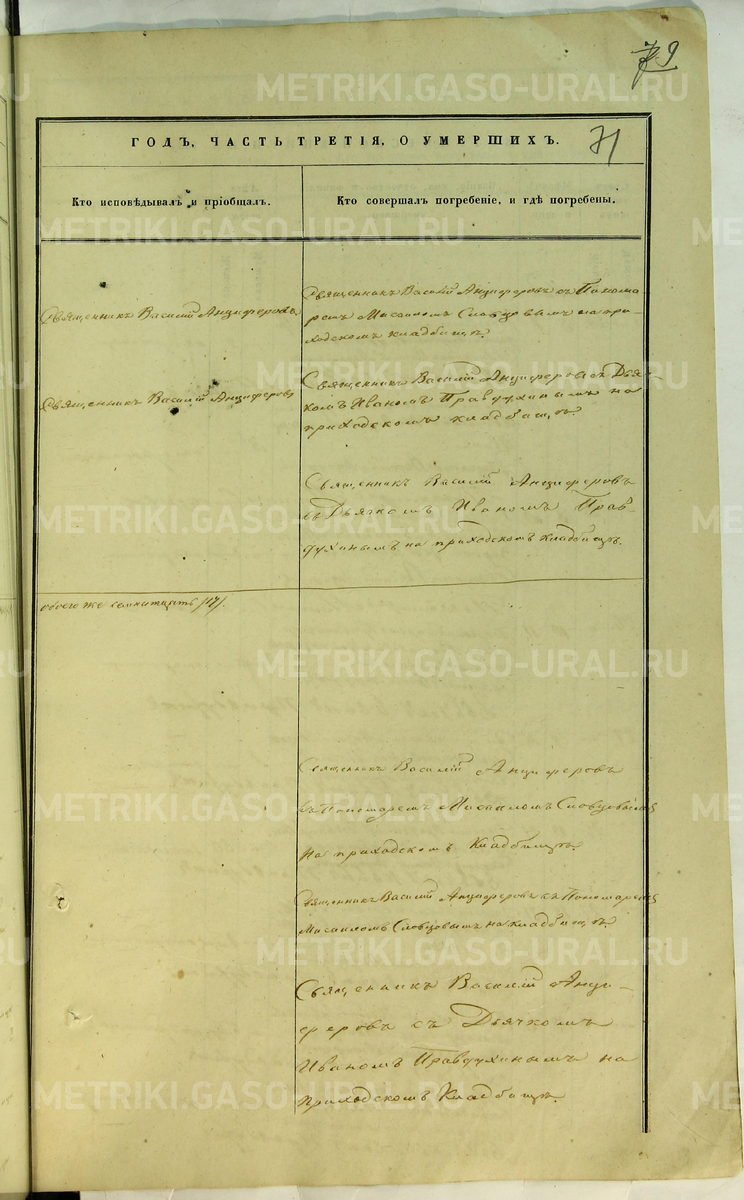 79
71
ГОДЪ, ЧАСТЬ ТРЕТІЯ, О УМЕРШИХЪ.
Кто исповѣдывалъ и пріобщалъ.
Кто совершалъ погребеніе, и гдѣ погребены.
Священникъ Василій Анциферовъ
Священникъ Василій Анциферовъ съ Понома-
ремъ Мисаиломъ Словцовымъ на при-
ходскомъ кладбищѣ.
Священникъ Василій Анциферовъ
Священникъ Василій Анциферовъ съ Дьяч-
комъ Иваномъ Правдухинымъ на
приходскомъ кладбищѣ.
Священникъ Василій Анциферовъ
съ Дьячкомъ Иваномъ Прав-
духинымъ на приходскомъ кладбищѣ.
обоего же семнатцать /17/.
Священникъ Василій Анциферовъ
съ Пономаремъ Мисаиломъ Словцовымъ
на приходскомъ Кладбищѣ.
Священникъ Василій Анциферовъ съ Пономаремъ
Мисаиломъ Словцовымъ на кладбищѣ.
Священникъ Василій Анци-
феровъ съ Дьячкомъ
Иваномъ Правдухинымъ на
приходскомъ Кладбищѣ.
METRIKI.GASO-URAL.RU